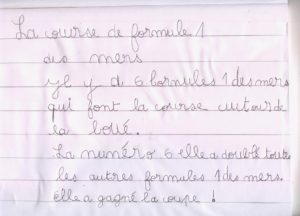 La course de formule 1
des mers
yl y a 6 formules 1 des mers
qui font la course autour de
la boué.
La numéro 6 elle a doublé toute
les autres formules 1 des mers.
élle a gagné la coupe !